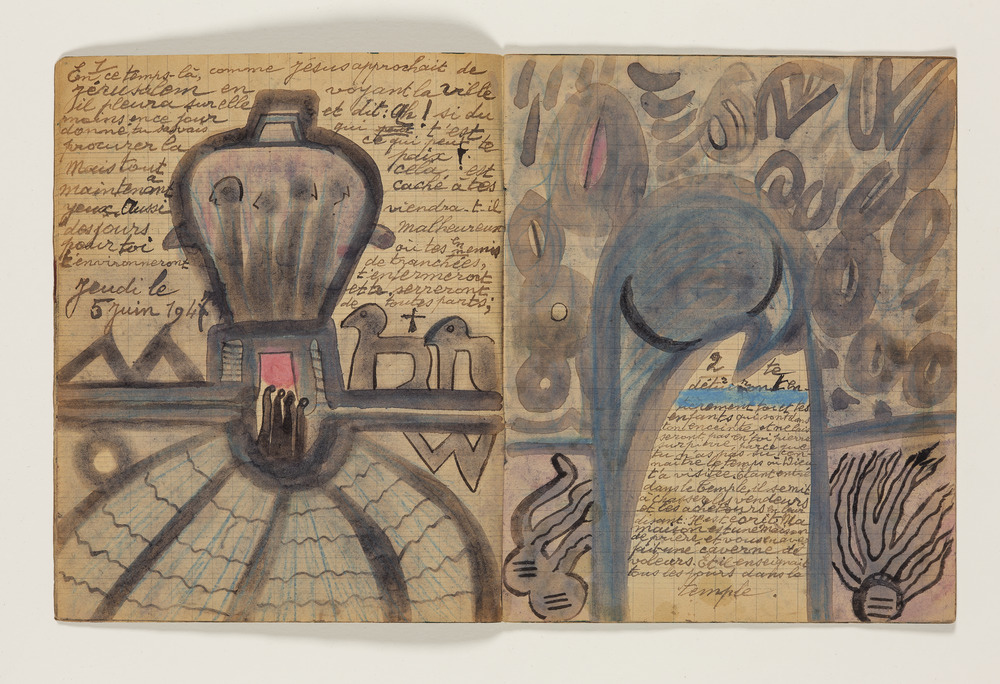 1
En ce temps-là, comme Jésus approchait de
Jérusalem en voyant la ville
il pleura sur elle et dit: Ah! si du
moins en ce jour qui t'est
donné, tu savais ce qui peut te
procurer la paix!
Mais tout cela, est
maintenant caché à tes
yeux. Aussi viendra-t-il
des jours malheureux
pour toi où tes ennemis
t'environneront de tranchées,
t'enfermeront
et te serreront
de toutes parts;
Jeudi le
5 Juin 194
2
te
détruiront en-
tièrement tout les
enfants qui sont dans
ton enceinte, et ne lais
seront pas en toi pierre
sur pierre, parce que
tu n'as pas su con
naître le temps où Dieu
t'a visitée étant entré
dans le temple, il se mit
à chasser les vendeurs
et les acheteurs en leur
disant: Il est écrit: Ma
maison est une maison
de prière, et vous en avez
fait une caverne de
voleurs. Et il enseignait
tous les jours dans le
temple.